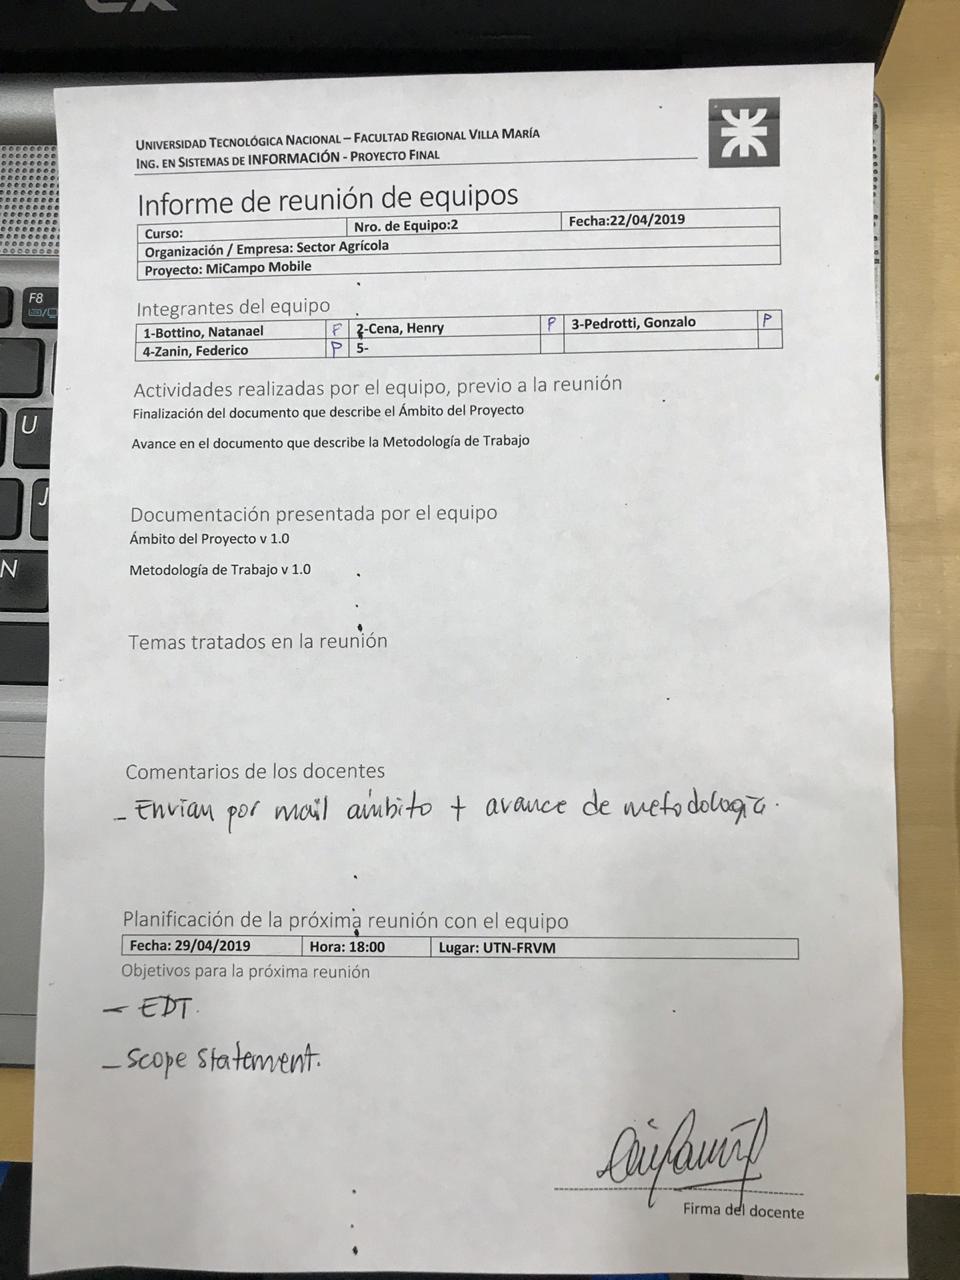 UNIVERSIDAD TECNOLÓGICA NACIONAL – FACULTAD REGIONAL VILLA MARÍA
ING. EN SISTEMAS DE INFORMACIÓN - PROYECTO FINAL
Informe de reunión de equipos
Curso: Nro. de Equipo:2 Fecha:22/04/2019
Organización / Empresa: Sector Agrícola
Proyecto: MiCampo Mobile
Integrantes del equipo
1-Bottino, Natanael F 2-Cena, Henry P 3-Pedrotti, Gonzalo P
4-Zanin, Federico P 5-
Actividades realizadas por el equipo, previo a la reunión
Finalización del documento que describe el Ámbito del Proyecto
Avance en el documento que describe la Metodología de Trabajo
Documentación presentada por el equipo
Ámbito del Proyecto v 1.0
Metodología de Trabajo v 1.0
Temas tratados en la reunión
Comentarios de los docentes
- Envían por mail ámbito + avance de metodología.
Planificación de la próxima reunión con el equipo
Fecha: 29/04/2019 Hora: 18:00 Lugar: UTN-FRVM
Objetivos para la próxima reunión
- EDT.
- Scope statement.
Firma del docente
F8
U
J
N